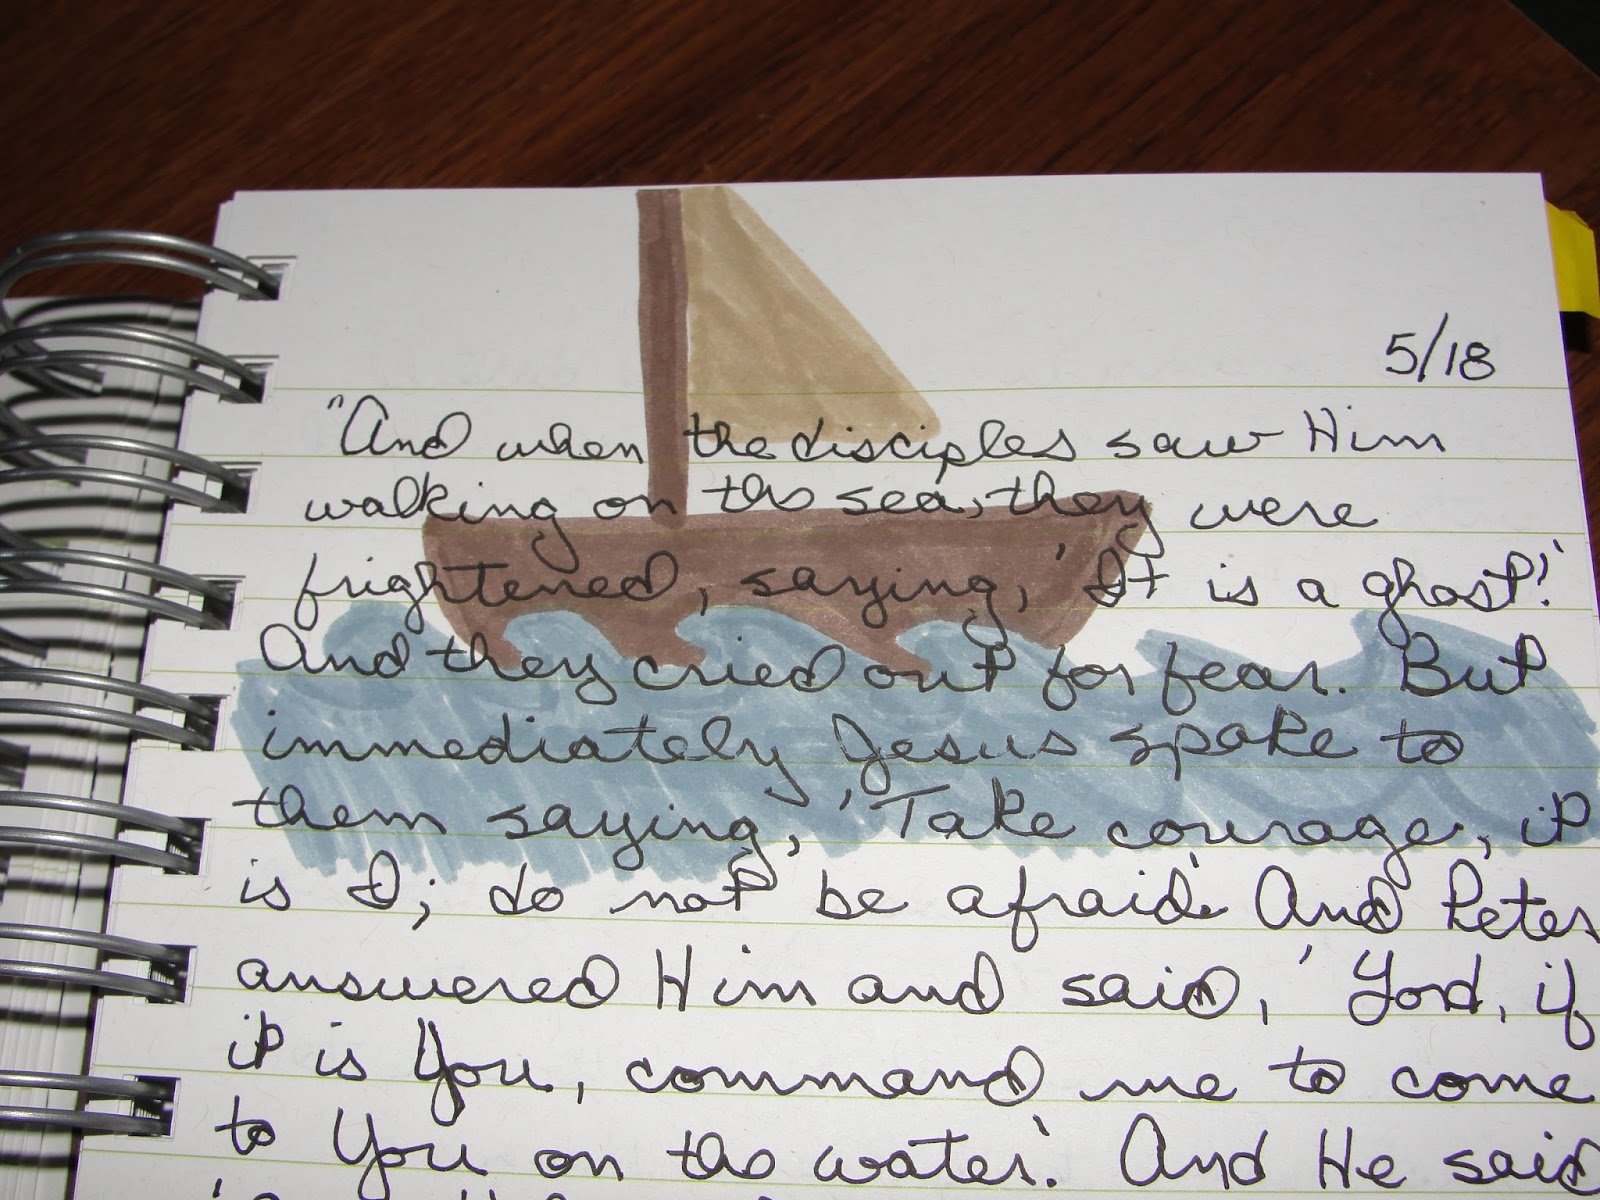 5/18
"And when the disciples saw Him
walking on the sea, they were
frightened, saying, 'It is a ghost!'
And they cried out for fear. But
immediately Jesus spoke to
them saying, 'Take courage, it
is I; do not be afraid.' And Peter
answered Him and said, 'Lord, if
it is You, command me to come
to You on the water.' And He said